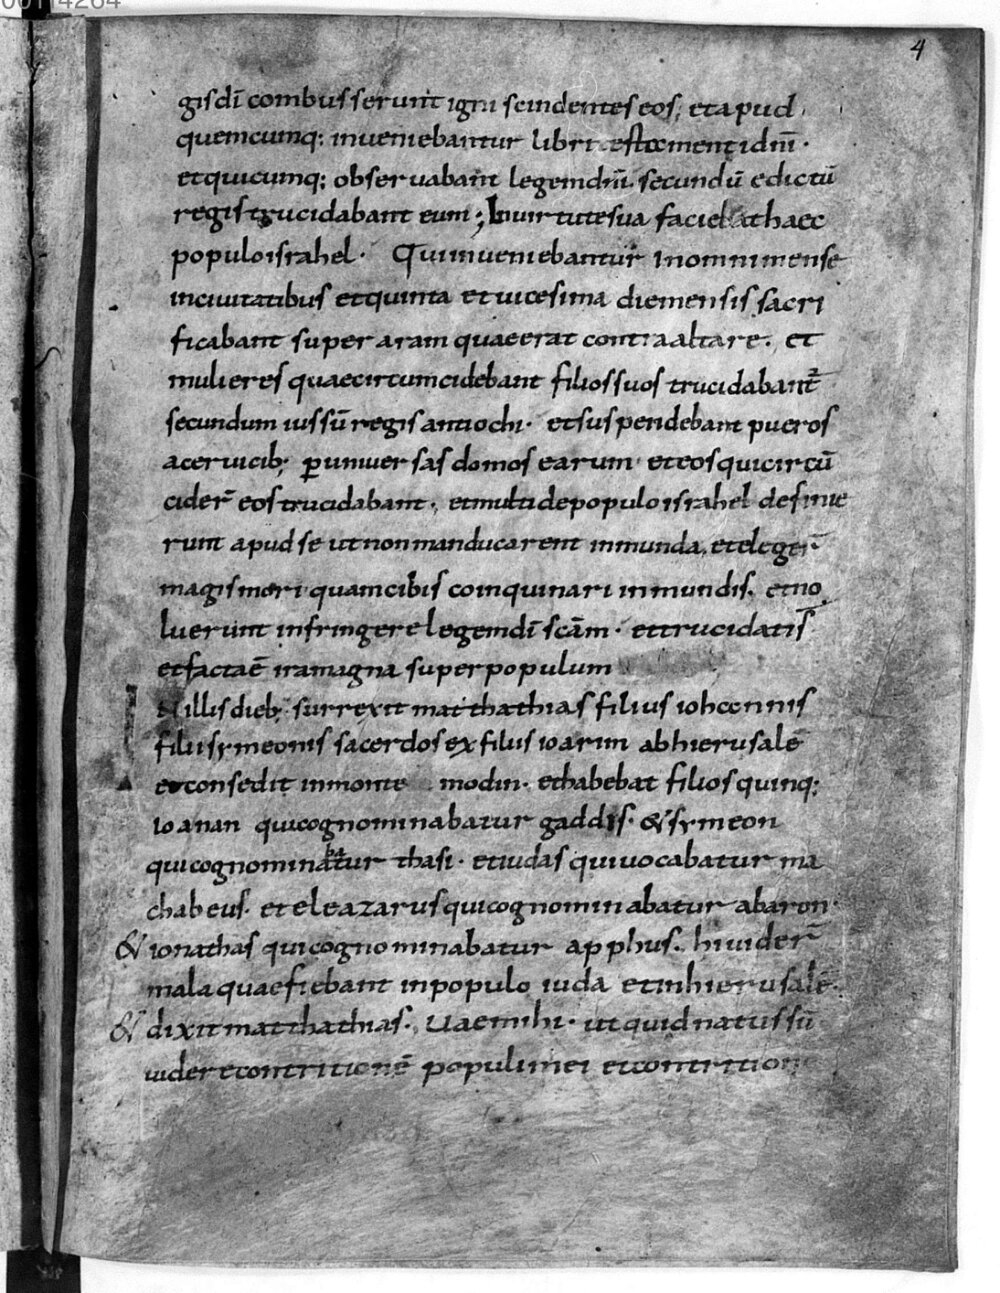 00114264
4
gis dī combusserunt igni scindentes eos, et apud
quemcumq: inueniebantur libri testamenti dn̄i ·
et quicumq; obseruabant legem dn̄i. secundū edictū
regis trucidabant eum ; In uirtute sua faciebat haec
populo israhel · Qui inueniebantur in omni mense
in ciuitatibus et quinta et uicesima die mensis sacri
ficabant super aram quae erat contra altare. et
mulieres quae circumcidebant filios suos trucidabant̄
secundum iussū regis antiochi · et suspendebant pueros
a ceruicib; ꝑ uniuersas domos earum · et eos qui circū
cider̄ eos trucidabant · et multi de populo israhel definie
runt apud se ut non manducarent inmunda. et eleger̄
magis mori quam cibis coinquinari inmundis. et no
luerunt infringere legem dī scām · et trucidati s̄
et facta ē ira magna super populum
IN illis dieb; surrexit matthathias filius iohannis
filii symeonis sacerdos ex filiis ioarim ab hierusalē
et consedit in monte modin · et habebat filios quinq;
ioanan qui cognominabatur gaddis · & symeon
qui cognominabatur thasi · et iudas qui uocabatur ma
chabeus · et eleazarus qui cognominabatur abaron ·
& ionathas qui cognominabatur apphus. hi uider̄
mala quae fiebant in populo iuda et in hierusalē.
& dixit matthathias. Uae mihi · ut quid natus sū
uidere contritionē populi mei et contritione